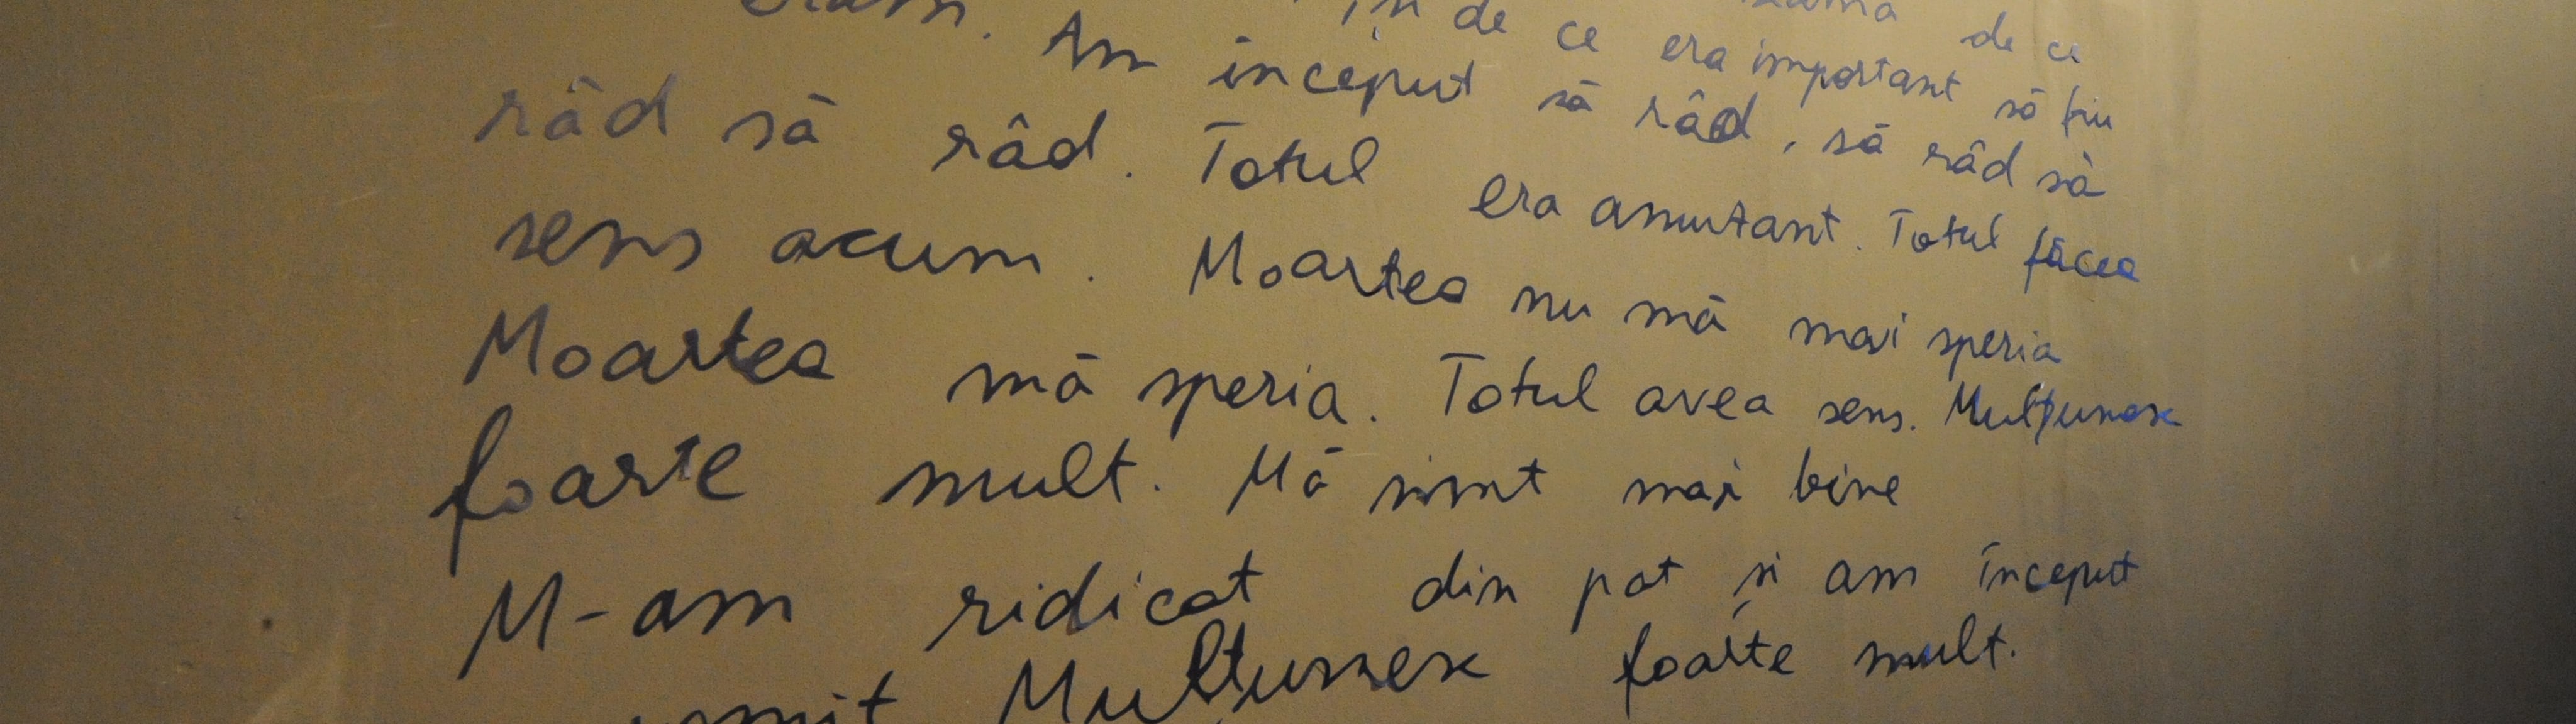 de ce
de ce era important să fiu
eram. Am început să râd, să râd să
râd să râd. Totul era amuzant. Totul făcea
sens acum. Moartea nu mă mai speria
Moartea mă speria. Totul avea sens. Mulțumesc
foarte mult. Mă simt mai bine
M-am ridicat din pat și am început
Mulțumesc foarte mult.